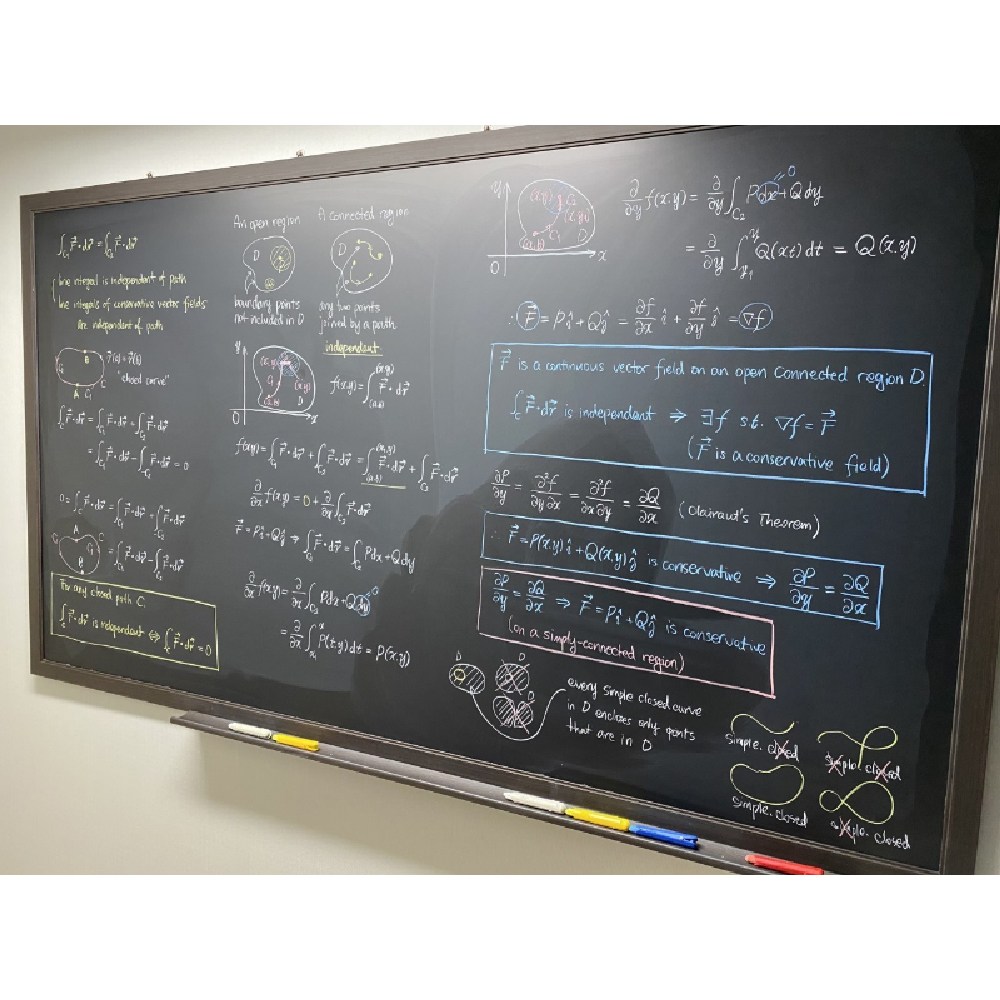 ∫_{C₁} F⃗·dr⃗ = ∫_{C₂} F⃗·dr⃗
line integral is independent of path
line integrals of conservative vector fields
are independent of path
B
r⃗(a) = r⃗(b)
"closed curve"
A C₁
∫_C F⃗·dr⃗ = ∫_{C₁} F⃗·dr⃗ + ∫_{C₂} F⃗·dr⃗
= ∫_{C₁} F⃗·dr⃗ - ∫_{-C₂} F⃗·dr⃗ = 0
0 = ∫_C F⃗·dr⃗ = ∫_{C₁} F⃗·dr⃗ + ∫_{C₂} F⃗·dr⃗
A
C₂ C₁ C
B
= ∫_{C₁} F⃗·dr⃗ - ∫_{-C₂} F⃗·dr⃗
For any closed path C,
∫_C F⃗·dr⃗ is independent ⇔ ∫_C F⃗·dr⃗ = 0
An open region
D
boundary points
not included in D
A connected region
D
any two points
joined by a path
independent
y
(x₁,y) C₂
C₁ (x,y)
(a,b) D
0 x
f(x,y) = ∫_{(a,b)}^{(x,y)} F⃗·dr⃗
f(x,y) = ∫_{C₁} F⃗·dr⃗ + ∫_{C₂} F⃗·dr⃗ = ∫_{(a,b)}^{(x₁,y)} F⃗·dr⃗ + ∫_{C₂} F⃗·dr⃗
∂/∂x f(x,y) = 0 + ∂/∂x ∫_{C₂} F⃗·dr⃗
F⃗ = Pî + Qĵ ⇒ ∫_{C₂} F⃗·dr⃗ = ∫_{C₂} Pdx + Qdy
∂/∂x f(x,y) = ∂/∂x ∫_{C₂} Pdx + Qdy 0
= ∂/∂x ∫_{x₁}^{x} P(t,y) dt = P(x,y)
y
(x,y) C₂
(x,y₁)
C₁
(a,b) D
0 x
∂/∂y f(x,y) = ∂/∂y ∫_{C₂} Pdx + Qdy 0
= ∂/∂y ∫_{y₁}^{y} Q(x,t) dt = Q(x,y)
∴ F⃗ = Pî + Qĵ = ∂f/∂x î + ∂f/∂y ĵ = ∇f
F⃗ is a continuous vector field on an open connected region D.
∫_C F⃗·dr⃗ is independent ⇒ ∃f s.t. ∇f = F⃗
(F⃗ is a conservative field)
∂P/∂y = ∂²f/∂y∂x = ∂²f/∂x∂y = ∂Q/∂x (Clairaut's Theorem)
∴ F⃗ = P(x,y)î + Q(x,y)ĵ is conservative ⇒ ∂P/∂y = ∂Q/∂x
∂P/∂y = ∂Q/∂x ⇒ F⃗ = Pî + Qĵ is conservative
(on a simply-connected region)
D D
D
every simple closed curve
in D encloses only points
that are in D
simple. closed
simple. closed
simple. closed
simple. closed